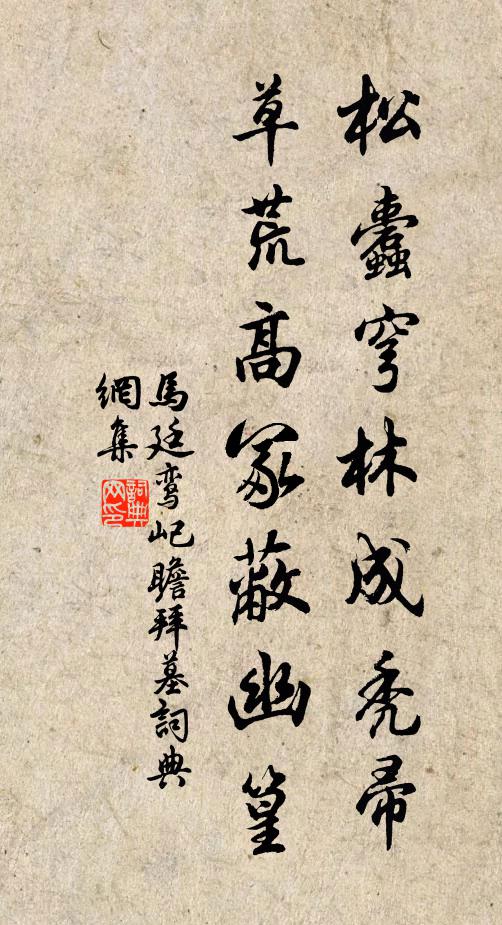 松蠹穹林成禿帚
草荒高冢蔽幽篁
馬廷鸾屺瞻拜墓詞典
網集
詞典
网印